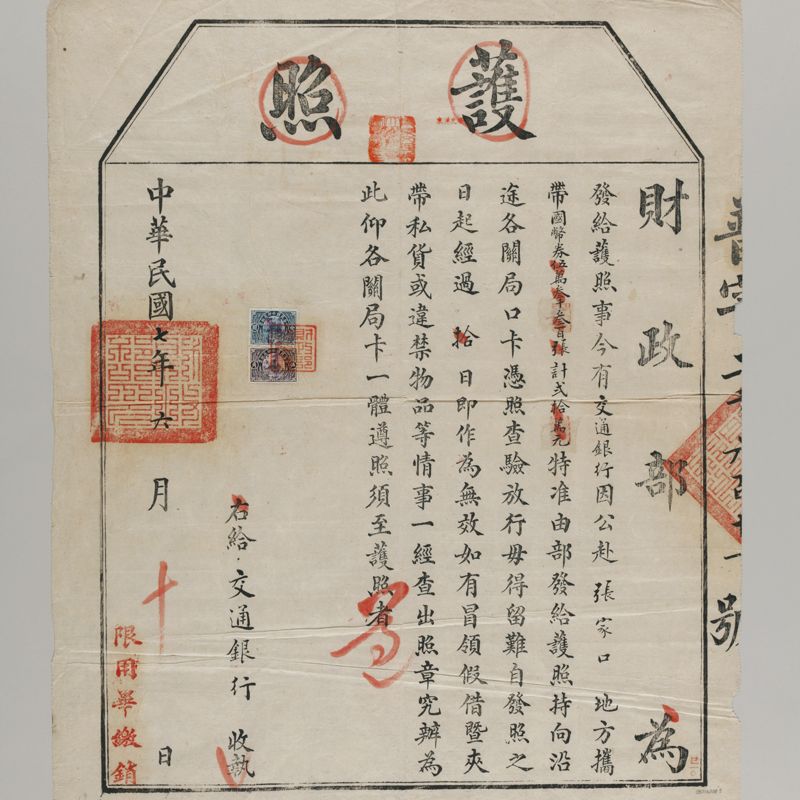 護照
財政部為
發給護照事今有交通銀行因公赴張家口地方攜
帶國幣券伍萬叁千叁百張計弍拾萬元特准由部發給護照持向沿
途各關局口卡憑照查驗放行毋得留難自發照之
日起經過拾日即作為無效如有冒領假借暨夾
帶私貨或違禁物品等情事一經查出照章究辦為
此仰各關局卡一體遵照須至護照者
右給交通銀行收執
中華民國七年六月十日
限用畢繳銷